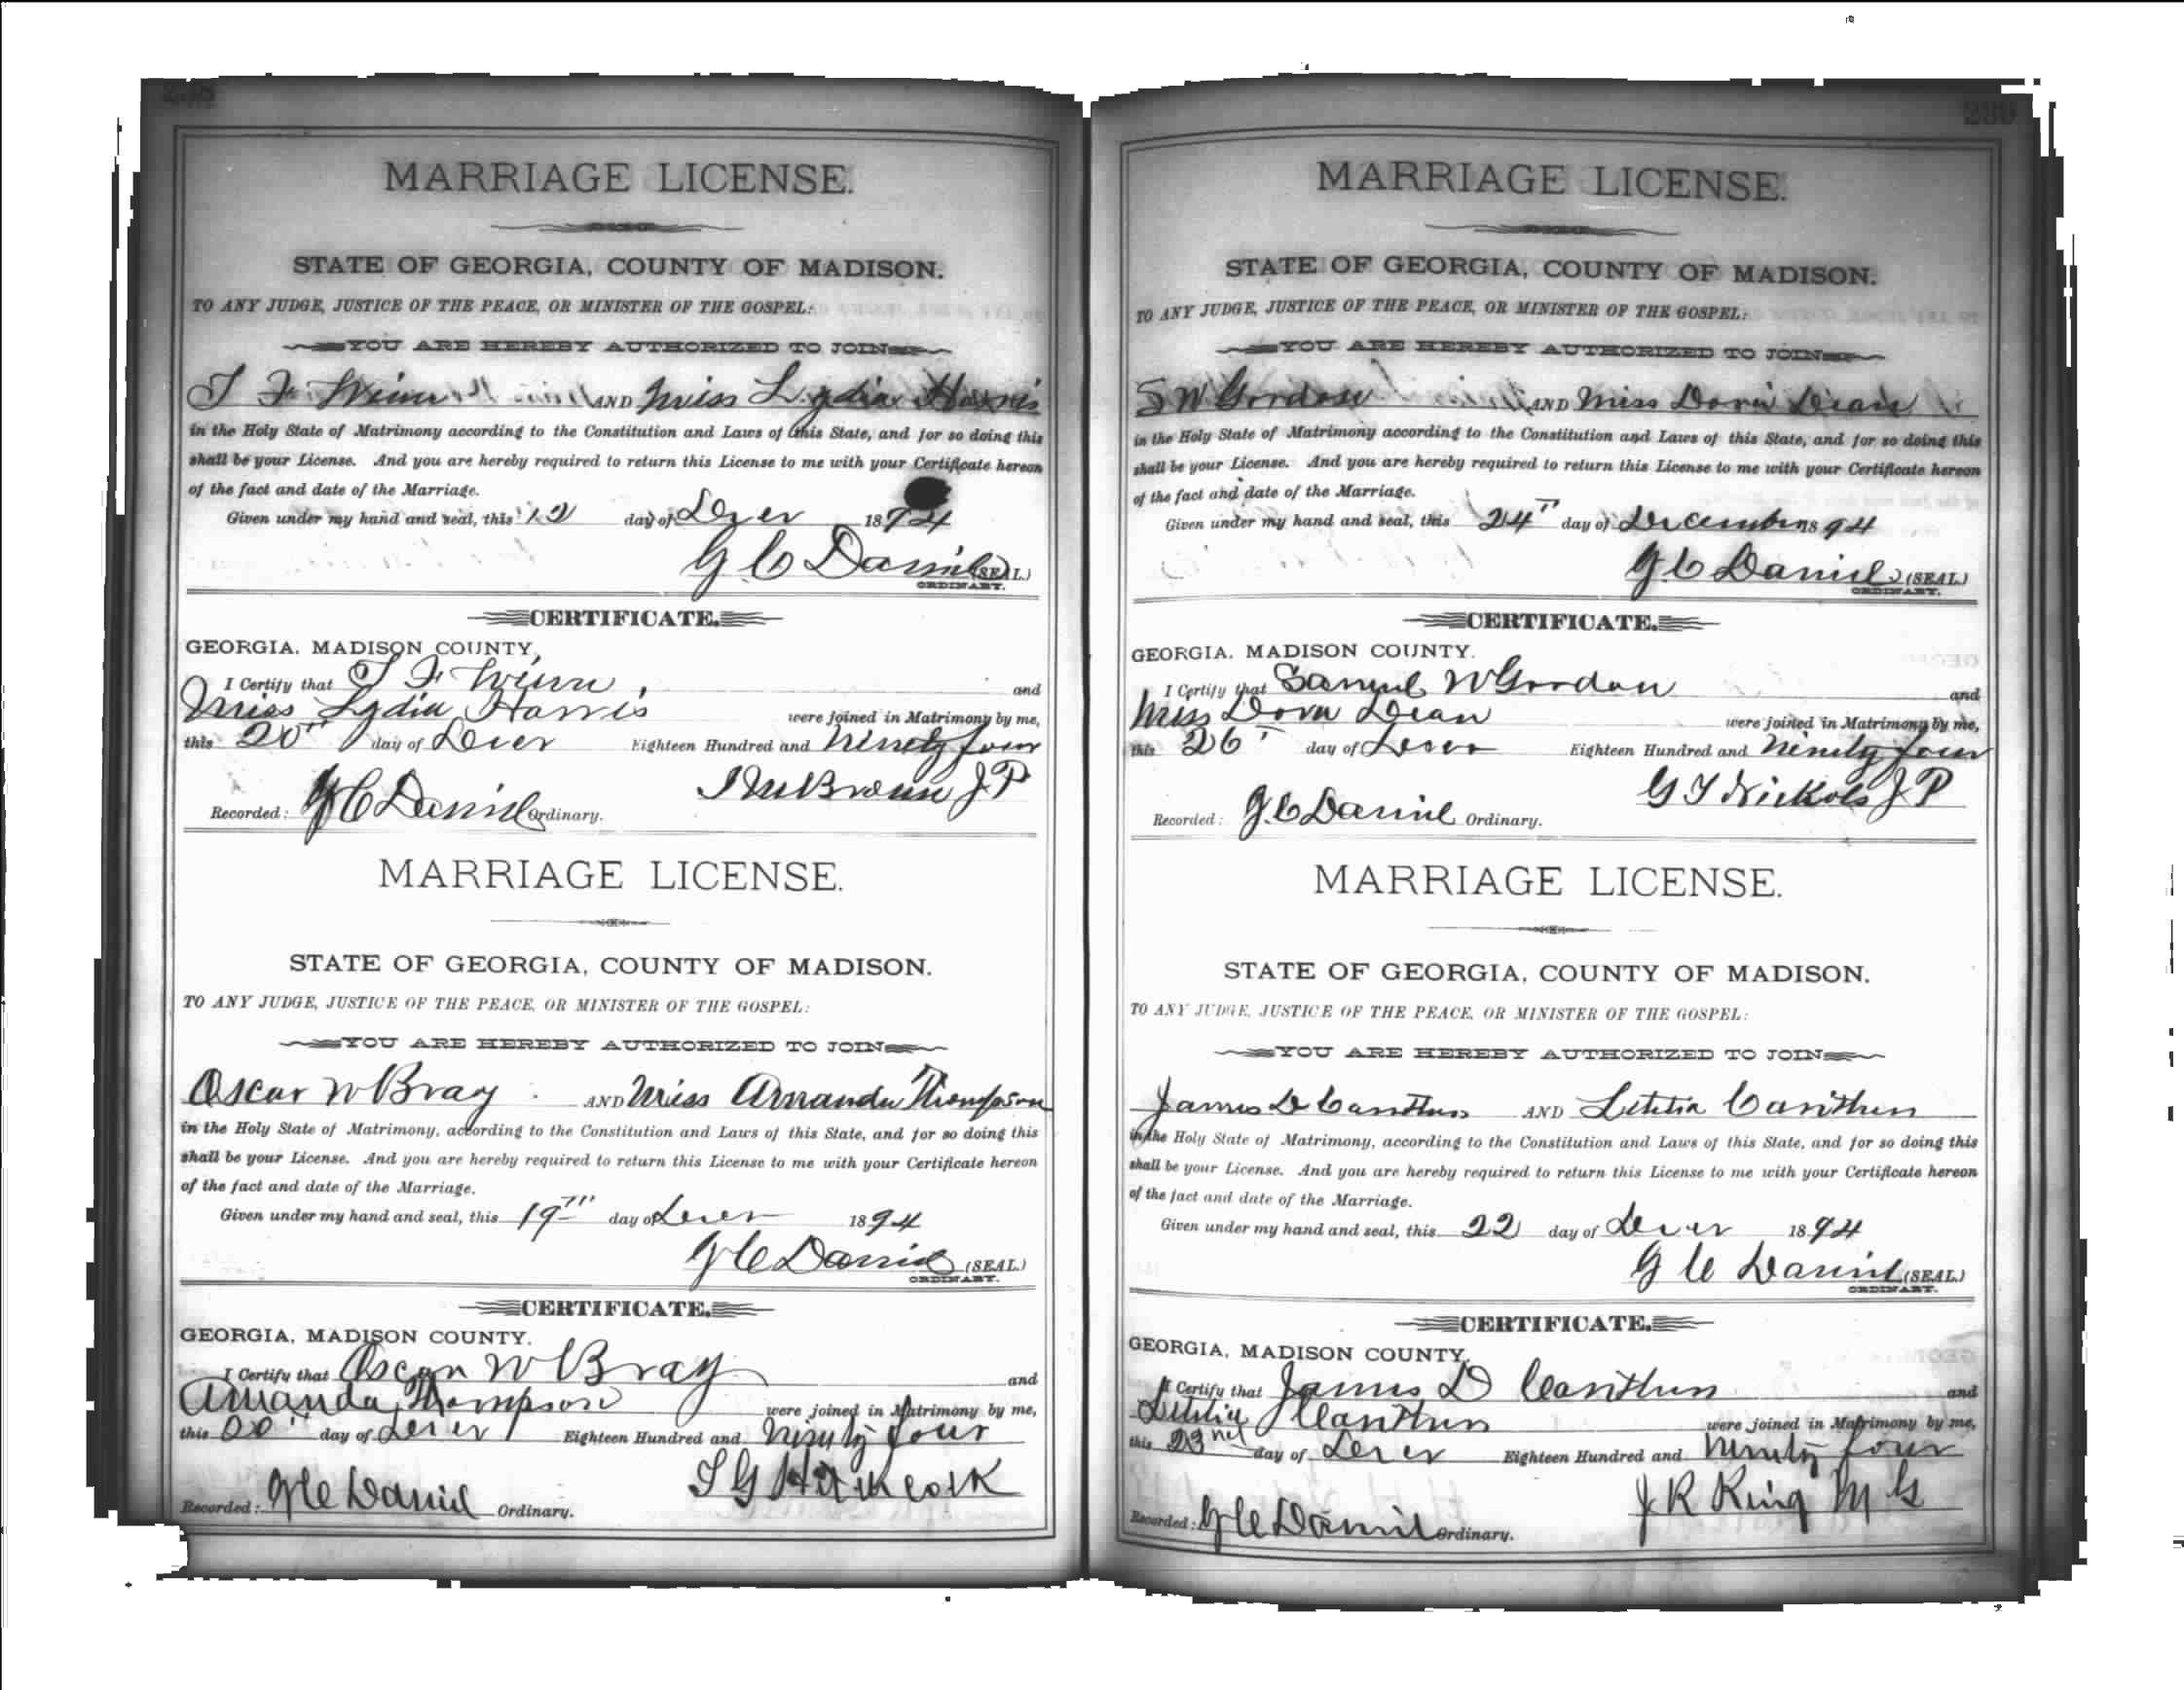 238
MARRIAGE LICENSE.
STATE OF GEORGIA, COUNTY OF MADISON.
TO ANY JUDGE, JUSTICE OF THE PEACE, OR MINISTER OF THE GOSPEL:
YOU ARE HEREBY AUTHORIZED TO JOIN
T F Winn AND Miss Lydia Harris
in the Holy State of Matrimony according to the Constitution and Laws of this State, and for so doing this
shall be your License. And you are hereby required to return this License to me with your Certificate hereon
of the fact and date of the Marriage.
Given under my hand and seal, this 12 day of Decr 1894
G C Daniel (SEAL.)
ORDINARY.
CERTIFICATE.
GEORGIA, MADISON COUNTY,
I Certify that T F Winn, and
Miss Lydia Harris were joined in Matrimony by me,
this 20" day of Decer Eighteen Hundred and ninety four
Brown J P
Recorded: G C Daniel Ordinary.
MARRIAGE LICENSE.
STATE OF GEORGIA, COUNTY OF MADISON.
TO ANY JUDGE, JUSTICE OF THE PEACE, OR MINISTER OF THE GOSPEL:
YOU ARE HEREBY AUTHORIZED TO JOIN
Oscar W Bray AND Miss Amanda Thompson
in the Holy State of Matrimony, according to the Constitution and Laws of this State, and for so doing this
shall be your License. And you are hereby required to return this License to me with your Certificate hereon
of the fact and date of the Marriage.
Given under my hand and seal, this 19th day of Decer 1894
G C Daniel (SEAL.)
ORDINARY.
CERTIFICATE.
GEORGIA, MADISON COUNTY.
I Certify that Oscar W Bray and
Amanda Thompson were joined in Matrimony by me,
this 20" day of Decer Eighteen Hundred and Ninety four
Recorded: G C Daniel Ordinary.
MARRIAGE LICENSE.
STATE OF GEORGIA, COUNTY OF MADISON.
TO ANY JUDGE, JUSTICE OF THE PEACE, OR MINISTER OF THE GOSPEL:
YOU ARE HEREBY AUTHORIZED TO JOIN
S W Gordon AND Miss Dora Dean
in the Holy State of Matrimony according to the Constitution and Laws of this State, and for so doing this
shall be your License. And you are hereby required to return this License to me with your Certificate hereon
of the fact and date of the Marriage.
Given under my hand and seal, this 24th day of December 1894
G C Daniel (SEAL.)
ORDINARY.
CERTIFICATE.
GEORGIA, MADISON COUNTY.
I Certify that Samuel W Gordon and
Miss Dora Dean were joined in Matrimony by me,
this 26 day of Decer Eighteen Hundred and ninety four
G T Nickols J P
Recorded: G C Daniel Ordinary.
MARRIAGE LICENSE.
STATE OF GEORGIA, COUNTY OF MADISON.
TO ANY JUDGE, JUSTICE OF THE PEACE, OR MINISTER OF THE GOSPEL:
YOU ARE HEREBY AUTHORIZED TO JOIN
James D Canthen AND Letitia Canthen
in the Holy State of Matrimony, according to the Constitution and Laws of this State, and for so doing this
shall be your License. And you are hereby required to return this License to me with your Certificate hereon
of the fact and date of the Marriage.
Given under my hand and seal, this 22 day of Decer 1894
G C Daniel (SEAL.)
ORDINARY.
CERTIFICATE.
GEORGIA, MADISON COUNTY.
I Certify that James D Canthen and
Letitia Canthen were joined in Matrimony by me,
this 23rd day of Decer Eighteen Hundred and ninety four
J R King M G
Recorded: G C Daniel Ordinary.